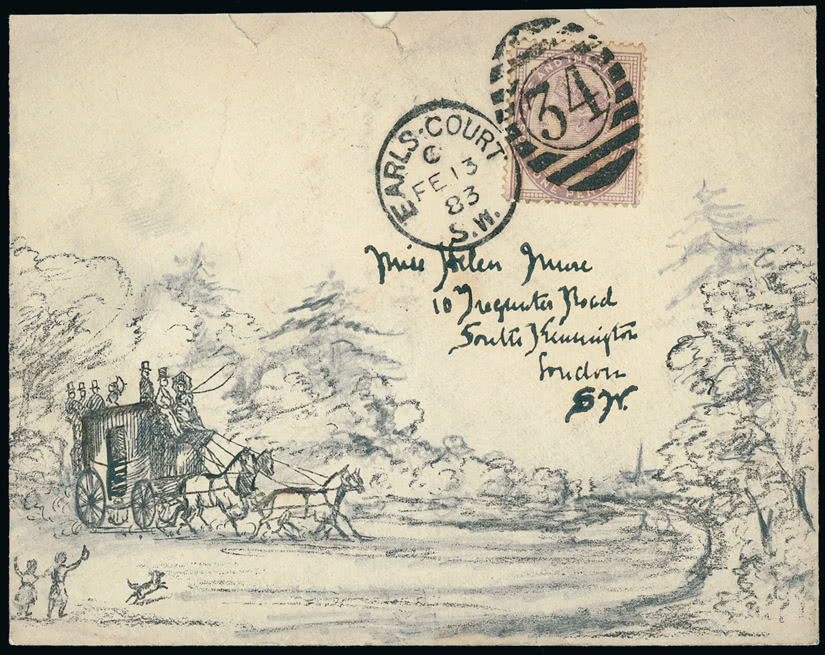 EARLS-COURT
C
FE 13
83
S.W.
34
ONE PENNY
Miss Helen
10 Tregunter Road
South Kensington
London
S.W.